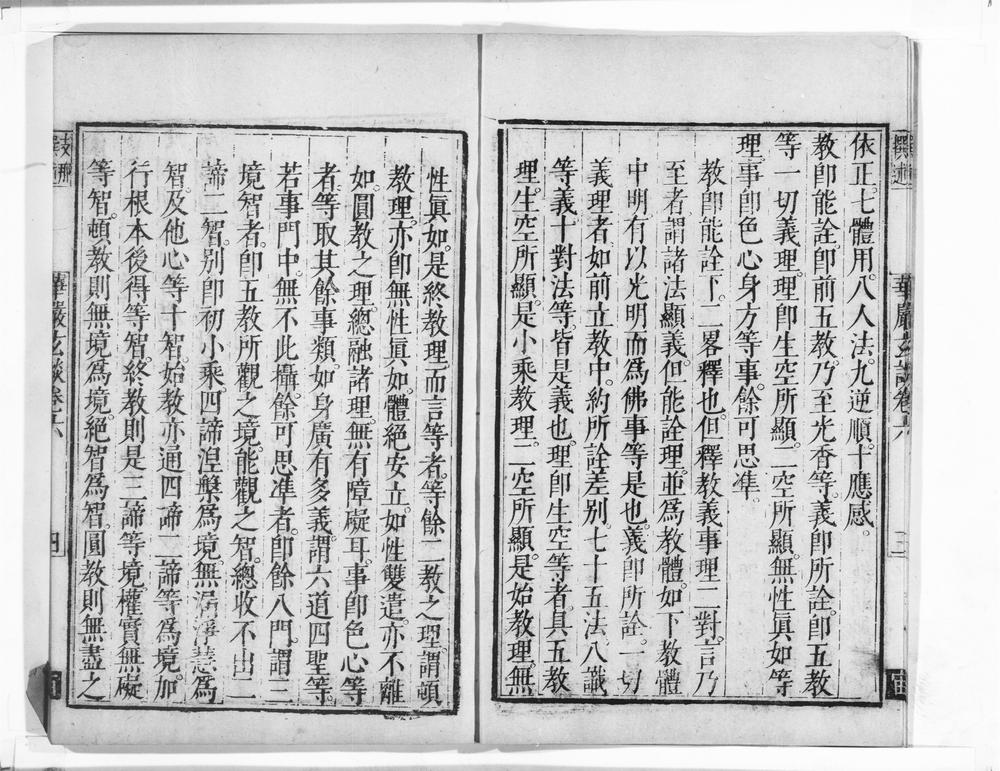 依正七體用八人法九逆順十應感。
教卽能詮卽前五教乃至光香等義卽所詮卽五教
等一切義理理卽生空所顯二空所顯無性眞如等
理事卽色心身方等事餘可思準。
教卽能詮下二畧釋也但釋教義事理二對言乃
至者謂諸法顯義但能詮理並爲教體如下教體
中明有以光明而爲佛事等是也義卽所詮一切
義理者如前立教中約所詮差別七十五法八識
等義十對法等皆是義也理卽生空等者具五教
理生空所顯是小乘教理二空所顯是始教理無
性眞如是終教理而言等者等餘二教之理謂頓
教理亦卽無性眞如體絕安立如性雙遣亦不離
如圓教之理總融諸理無有障礙耳事卽色心等
者等取其餘事類如身廣有多義謂六道四聖等
若事門中無不此攝餘可思準者卽餘八門謂三
境智者卽五教所觀之境能觀之智總收不出二
諦二智別卽初小乘四諦涅槃爲境無漏淨慧爲
智及他心等十智始教亦通四諦二諦等爲境加
行根本後得等智終教則是三諦等境權實無礙
等智頓教則無境爲境絕智爲智圓教則無盡之
華嚴玄談卷六
四
華嚴玄談卷六
三